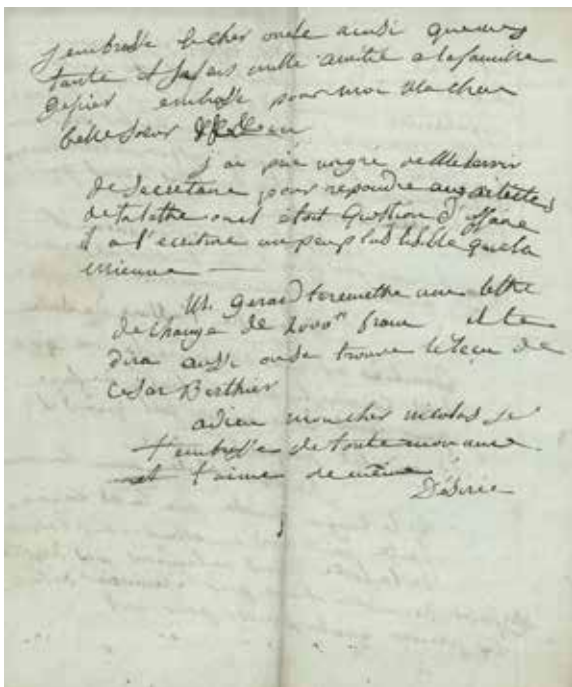 j embrasse le cher oncle ainsi que mes
tante et fasais mille amitie a la famille
embrasse pour moi ma chere
belle soeur
j ai prie ungré de me servir
de secretaire pour repondre aux articles
de ta lettre ou il etoit question d'affaire
il a l'ecriture un peu plus lisible que la
mienne
Mr. Gerard te remettra une lettre
de change de 2000 franc il te
dira aussi ou se trouve le reçu de
Cesar Berthier
adieu mon cher nicolas je
t'embrasse de toute mon ame
et t'aime de même
Désirée